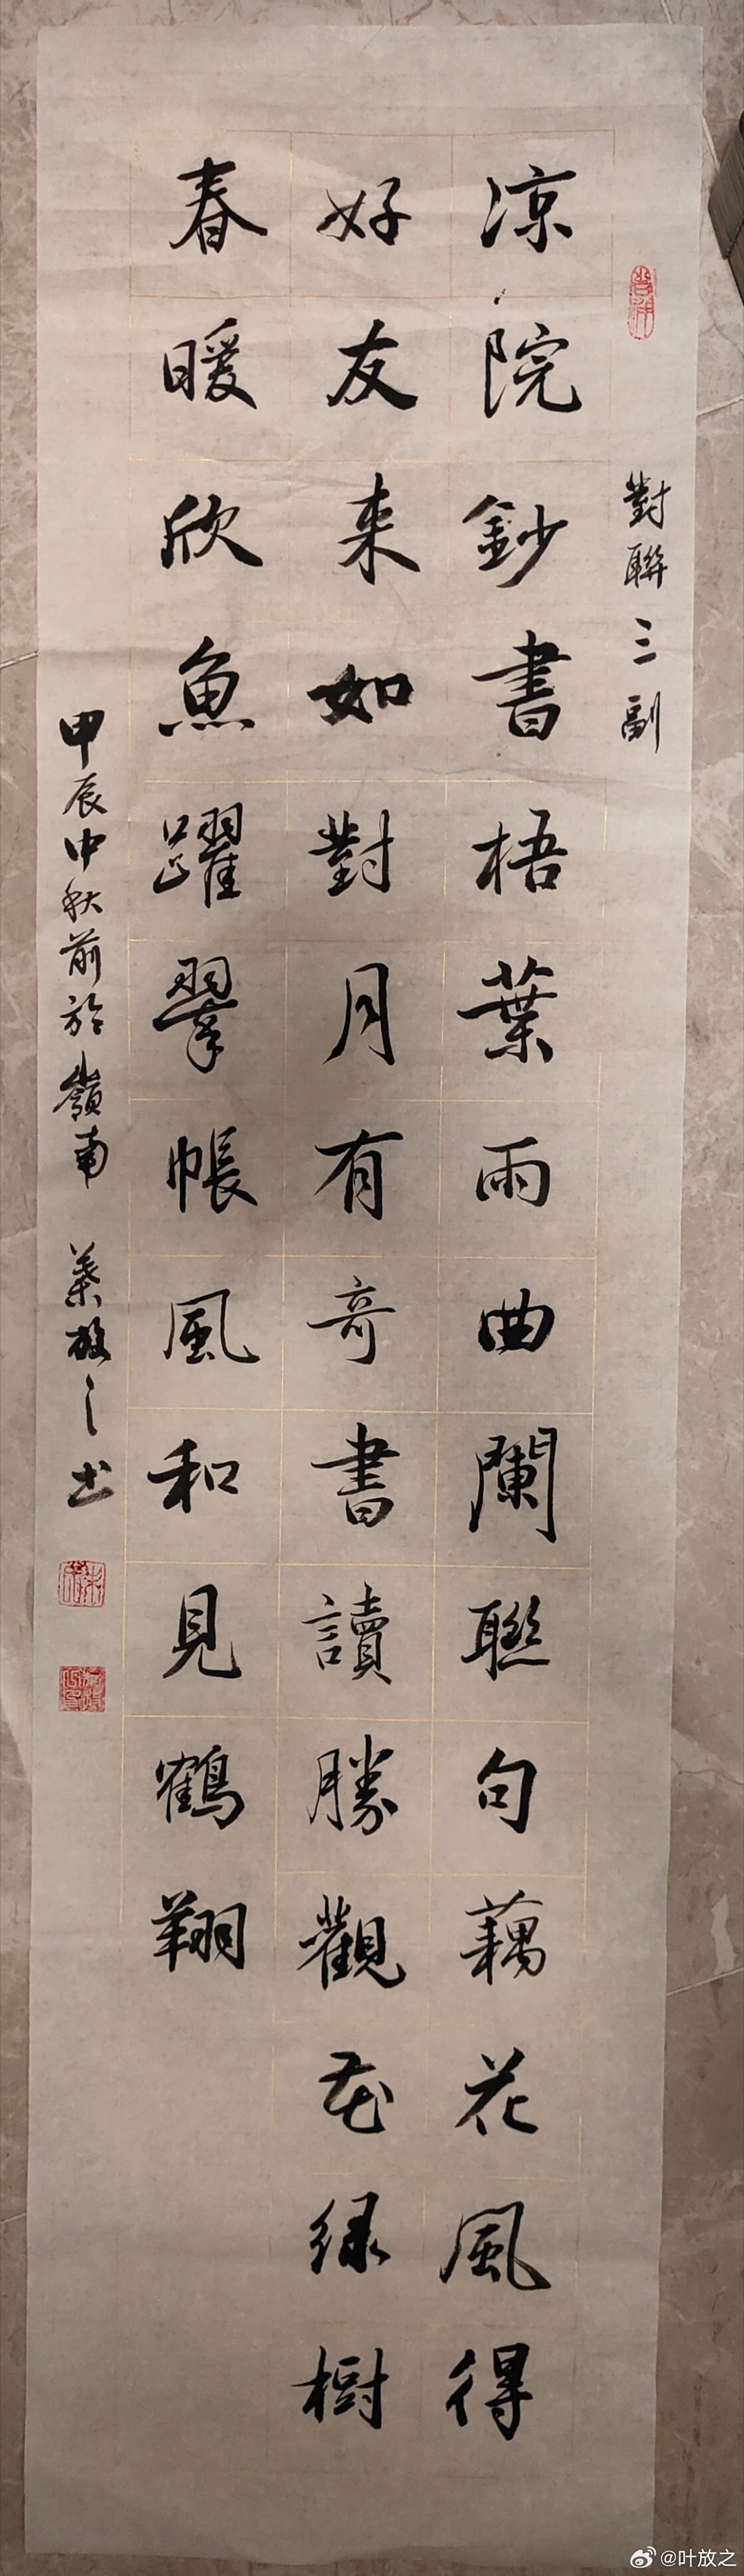 對聯三副
凉院鈔書梧葉雨曲闌聯句藕花風得
好友来如對月有奇書讀勝觀花绿樹
春暖欣魚躍翠帳風和見鶴翔
甲辰中秋前於嶺南 葉放之书
@叶放之